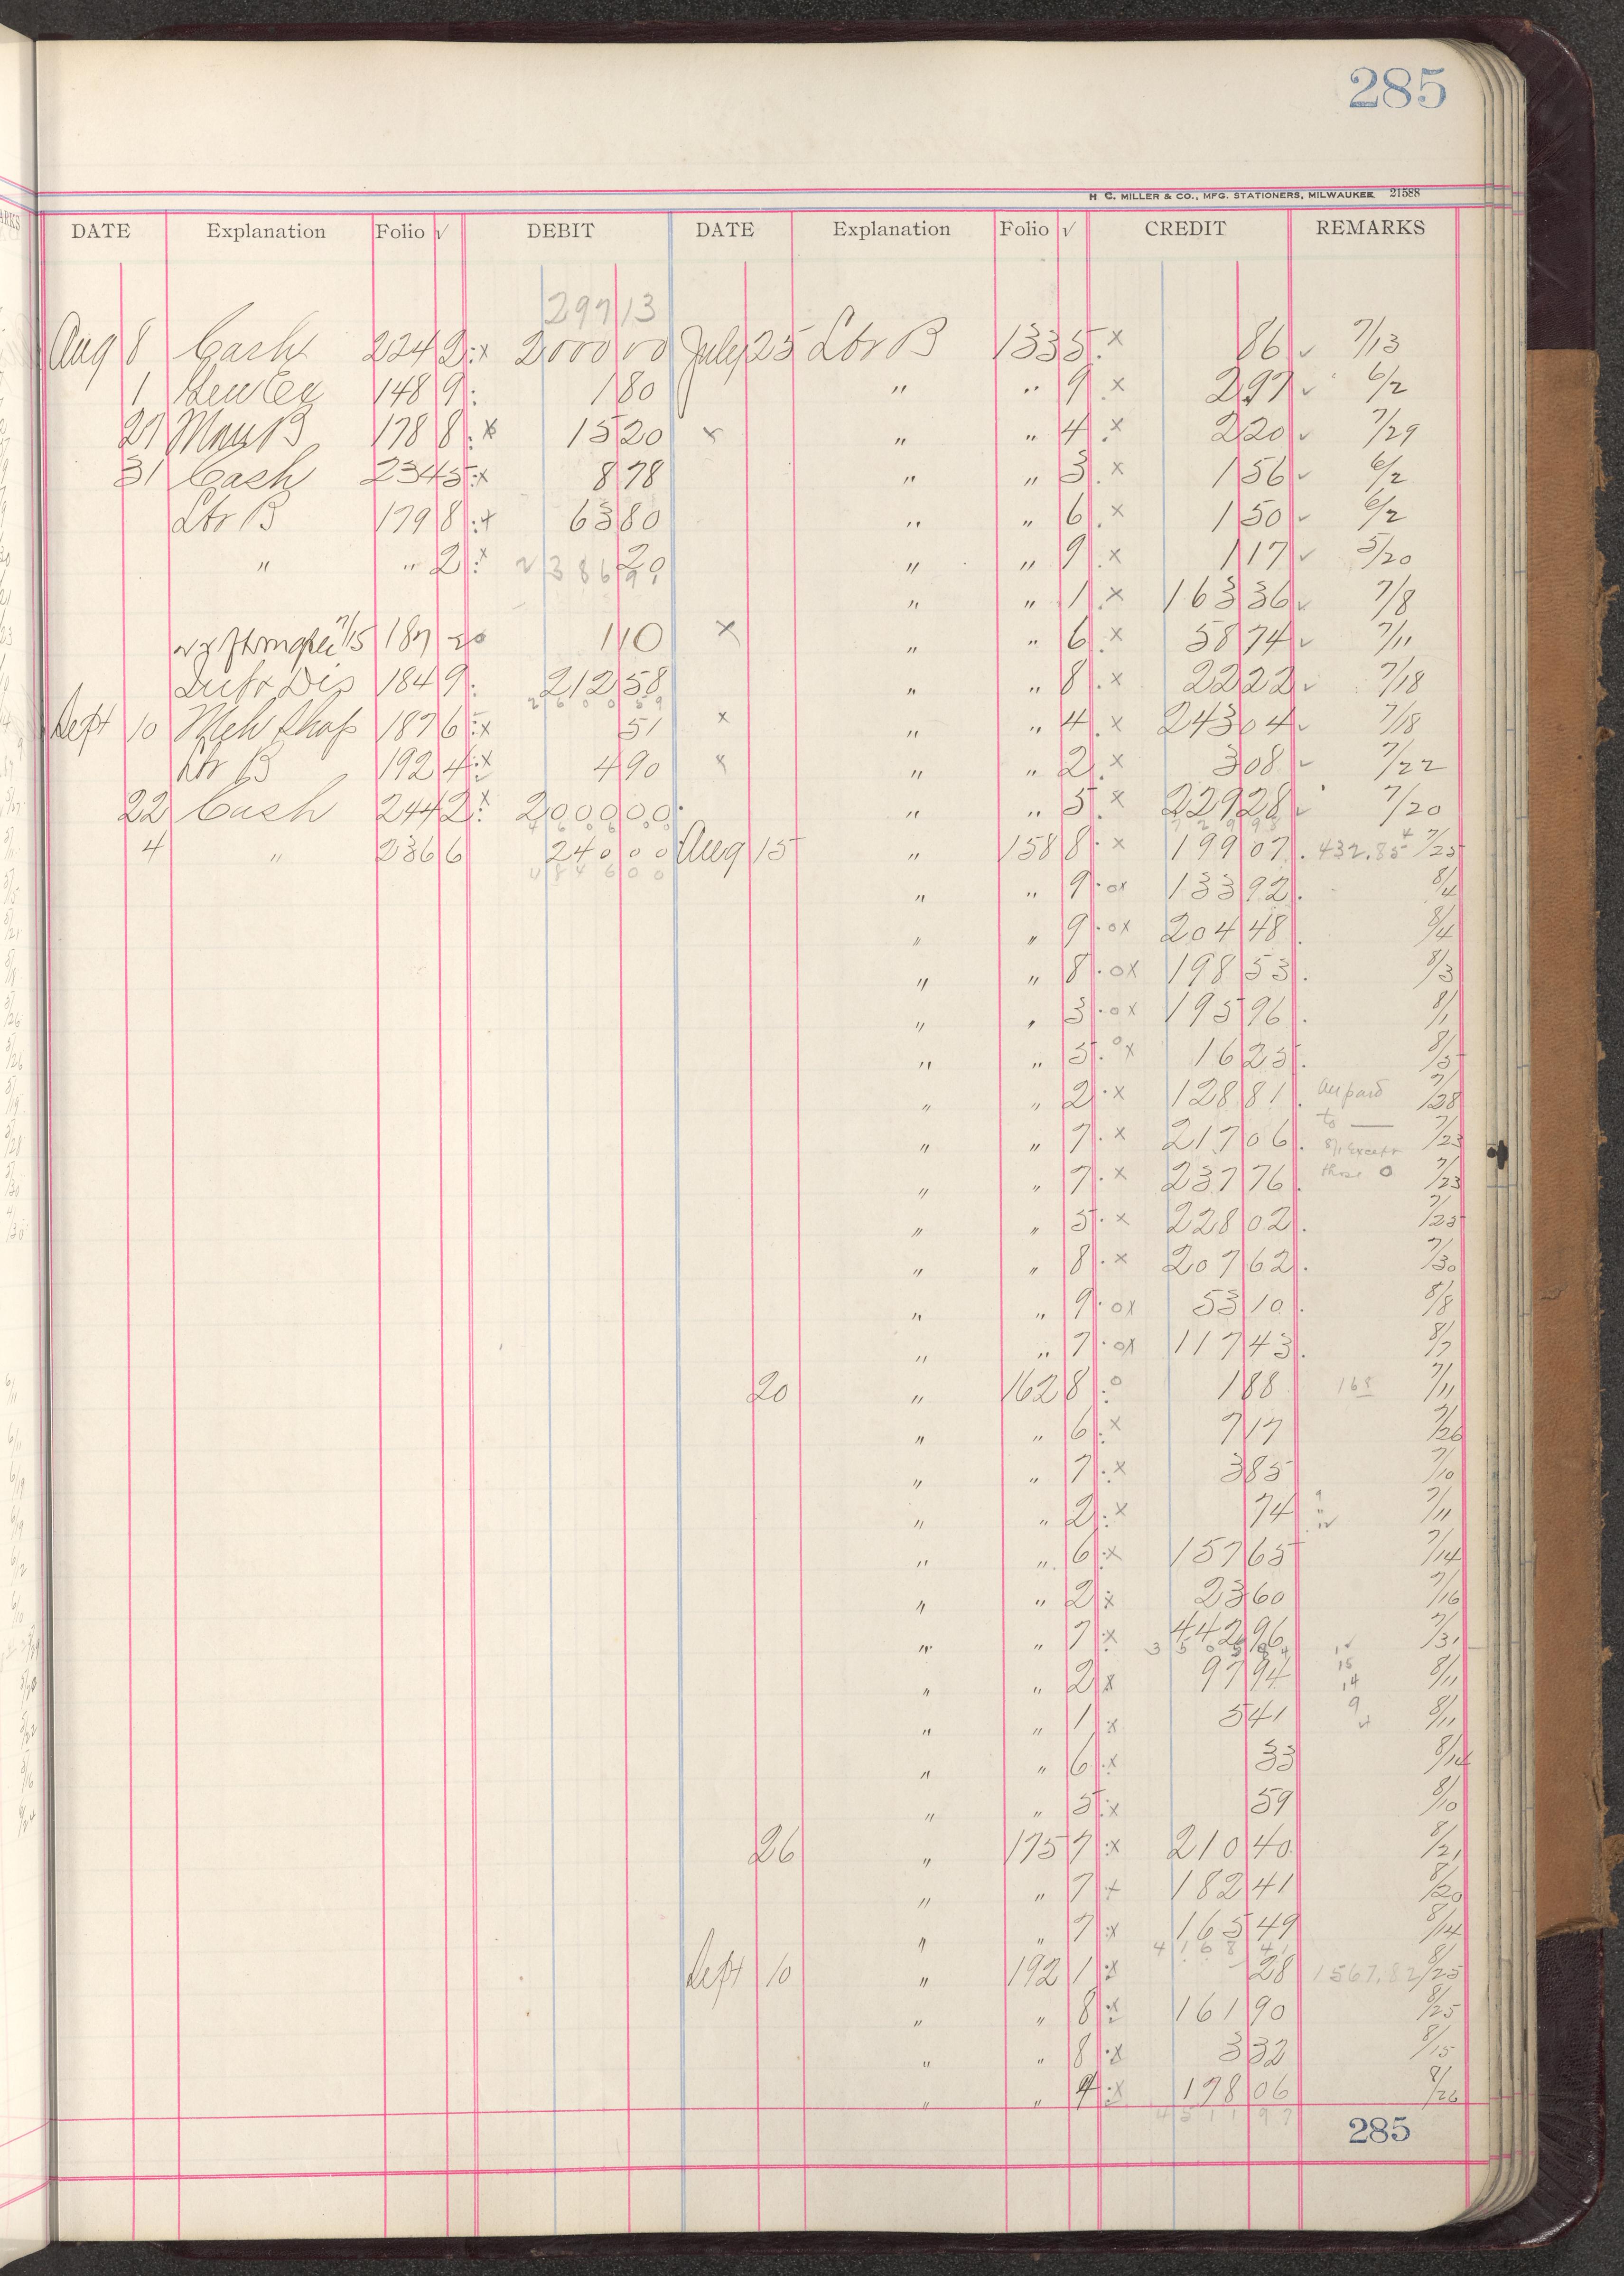 285
H. C. MILLER & CO., MFG. STATIONERS, MILWAUKEE 21588
DATE Explanation Folio √ DEBIT DATE Explanation Folio √ CREDIT REMARKS
297 13
Aug 8 Cash 224 2 : x 2000 00 July 25 Ltr B 133 5 . x 86 ✓ 7/13
1 148 9 : 1 80 " " 9 . x 2 97 ✓ 6/2
27 B 178 8 : x 15 20 x " " 4 . x 2 20 ✓ 7/29
31 Cash 234 5 : x 8 78 " " 3 . x 1 56 ✓ 6/2
Ltr B 179 8 : x 63 80 " " 6 . x 1 50 ✓ 6/2
" " 2 : x 20 " " 9 . x 1 17 ✓ 5/20
2386 91
" " 1 . x 163 36 ✓ 7/8
7/15 187 1 10 x " " 6 . x 58 74 ✓ 7/11
184 9 : 212 58 " " 8 . x 22 22 ✓ 7/18
2600 59
Sept 10 Mch Shop 187 6 : x 51 x " " 4 . x 243 04 ✓ 7/18
Ltr B 192 4 : x 4 90 x " " 2 . x 3 08 ✓ 7/22
22 Cash 244 2 : x 2000 00 " " 5 . x 229 28 ✓ 7/20
4606 00
4 " 236 6 240 00 Aug 15 " 158 8 . x 199 07 . 432.85 7/25
4846 00
" " 9 . ox 133 92 . 8/4
" " 9 . ox 204 48 . 8/4
" " 8 . ox 198 53 . 8/3
" " 3 . ox 195 96 . 8/1
" " 5 . ox 16 25 . 8/5
" " 2 . x 128 81 . All paid 7/28
to
" " 7 . x 217 06 . 8/1 except 7/23
" " 7 . x 237 76 . those o 7/23
" " 5 . x 228 02 . 7/25
" " 8 . x 207 62 . 7/30
" " 9 . ox 53 10 . 8/8
" " 7 . ox 117 43 . 8/7
20 " 162 8 : o 1 88 168 7/11
" " 6 : x 7 17 7/26
" " 7 : x 3 85 7/10
" " 2 : x 74 7/11
" " 6 : x 157 65 7/14
" " 2 : x 23 60 7/16
" " 7 : x 442 96 7/31
" " 2 x 97 94 15 14 8/11
" " 1 : x 5 41 9 8/11
" " 6 : x 33 8/14
" " 5 : x 59 8/10
26 " 175 7 : x 210 40 8/21
" " 7 x 182 41 8/20
" " 7 : x 165 49 8/14
4168 41
Sept 10 " 192 1 : x 28 1567.82 8/25
" " 8 : x 161 90 8/25
" " 8 : x 3 32 8/15
" " 4 : x 178 06 8/26
4511 97
285